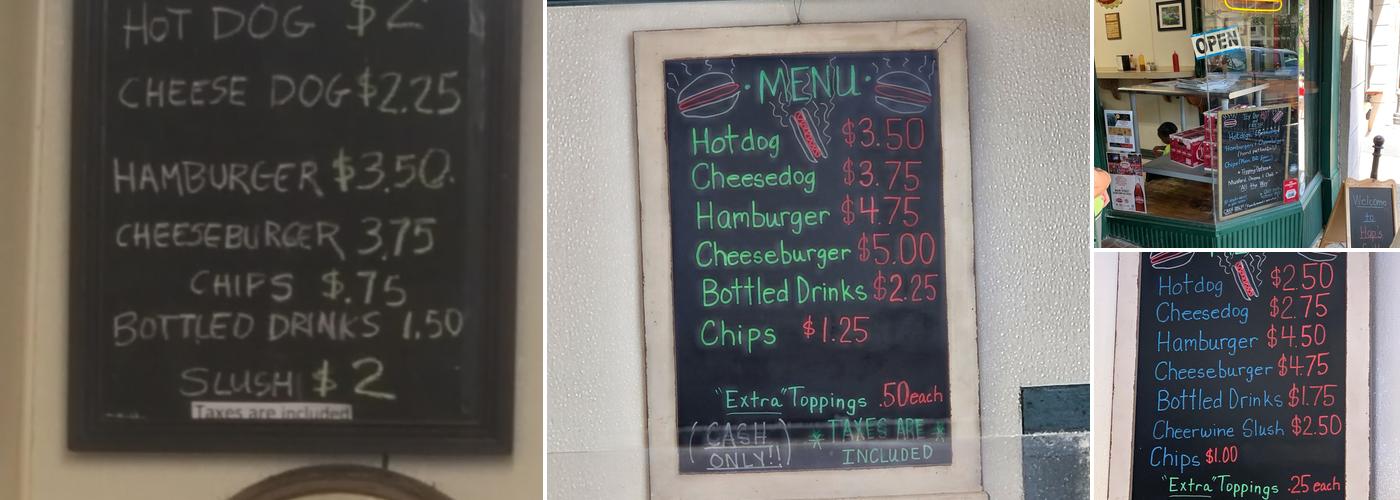 HOT DOG $2
CHEESE DOG $2.25
HAMBURGER $3.50
CHEESEBURGER 3.75
CHIPS $.75
BOTTLED DRINKS 1.50
SLUSH $2
Taxes are included
·MENU·
Hotdog $3.50
Cheesedog $3.75
Hamburger $4.75
Cheeseburger $5.00
Bottled Drinks $2.25
Chips $1.25
"Extra" Toppings .50 each
(CASH ONLY!!)
* TAXES ARE INCLUDED *
OPEN
"All the Way"
Welcome
to
Hap's
Hotdog $2.50
Cheesedog $2.75
Hamburger $4.50
Cheeseburger $4.75
Bottled Drinks $1.75
Cheerwine Slush $2.50
Chips $1.00
"Extra" Toppings .25 each